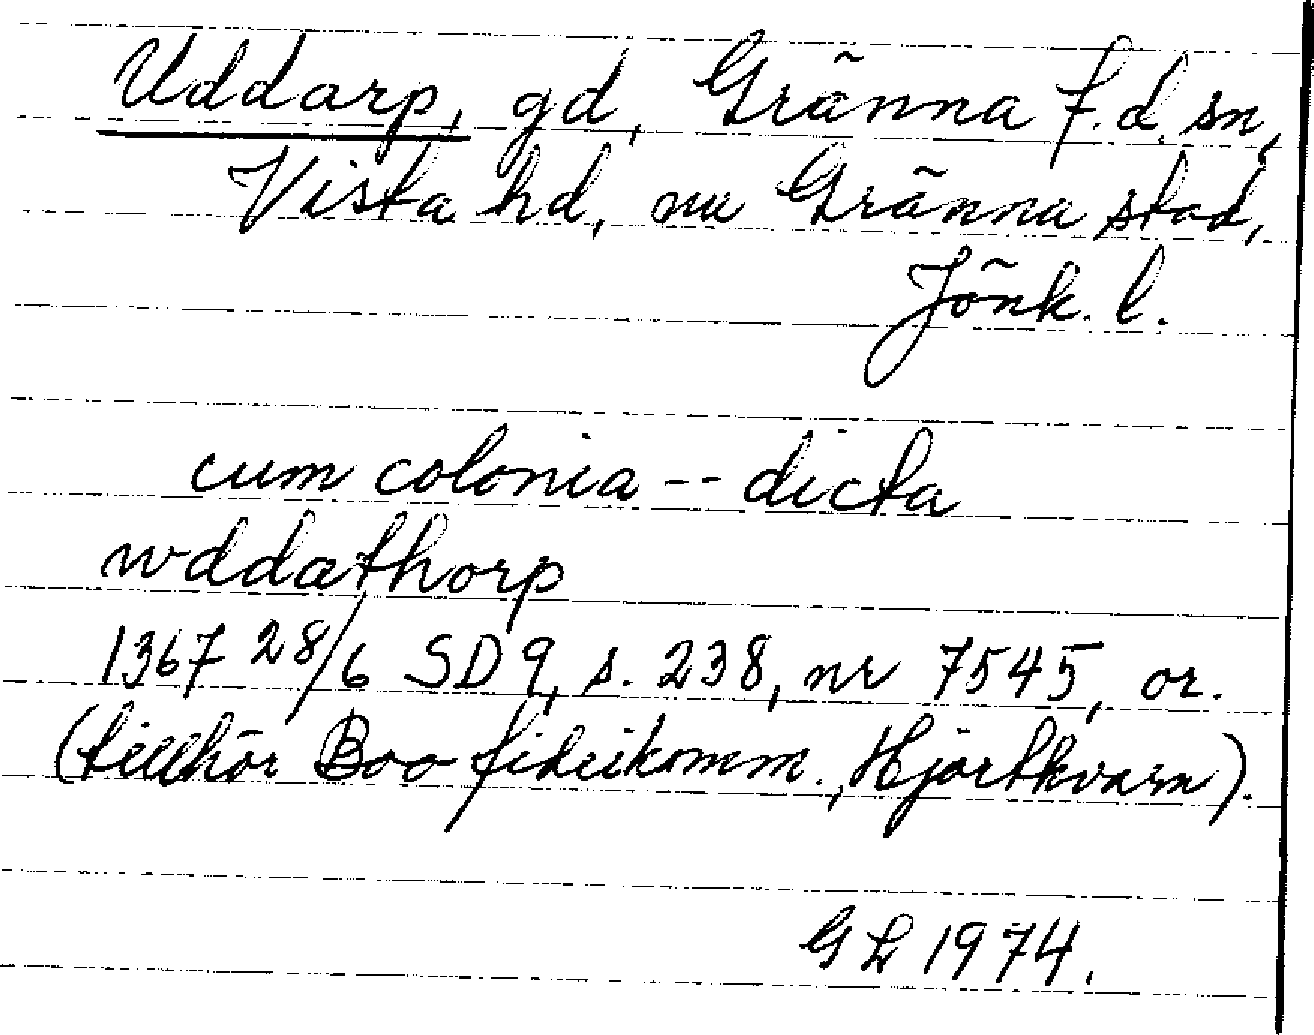 Uddarp, gd, Gränna f.d. sn,
Vista hd, nu Gränna stad,
Jönk. l.
cum colonia -- dicta
wddathorp
1367 28/6 SD 9, s. 238, nr 7545, or.
(tillhör Boo fideikomm., Hjortkvarn).
GL 1974.